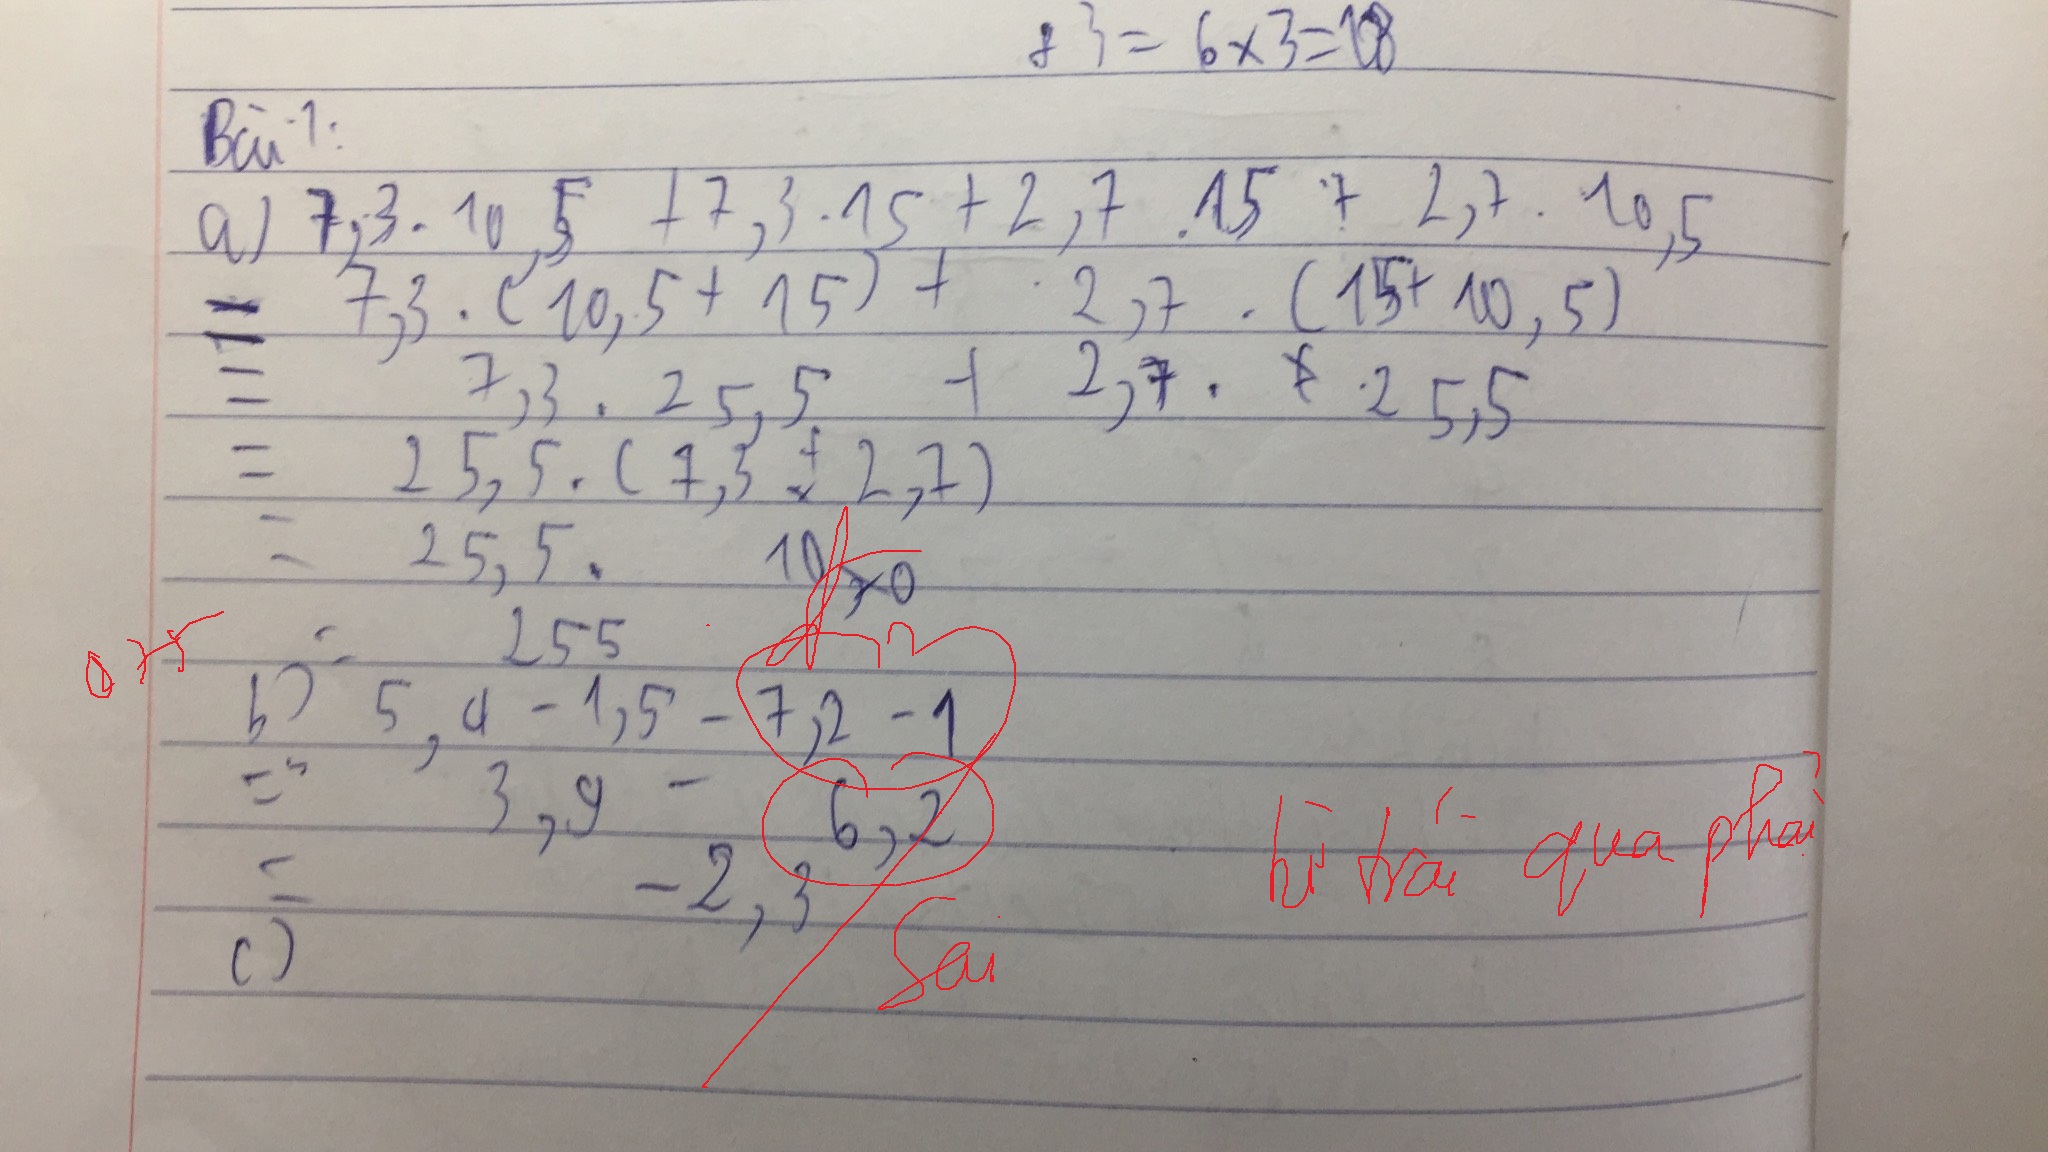 8 3 = 6 x 3 = 18
Bài 1:
a) 7,3 . 10,5 + 7,3 . 15 + 2,7 . 15 + 2,7 . 10,5
= 7,3 . (10,5 + 15) + 2,7 . (15 + 10,5)
= 7,3 . 25,5 + 2,7 . 25,5
= 25,5 . (7,3 + 2,7)
= 25,5 . 10
= 255
0,75
b) 5,4 - 1,5 - 7,2 - 1
= 3,9 - 6,2
= -2,3
từ trái qua phải
Sai
c)